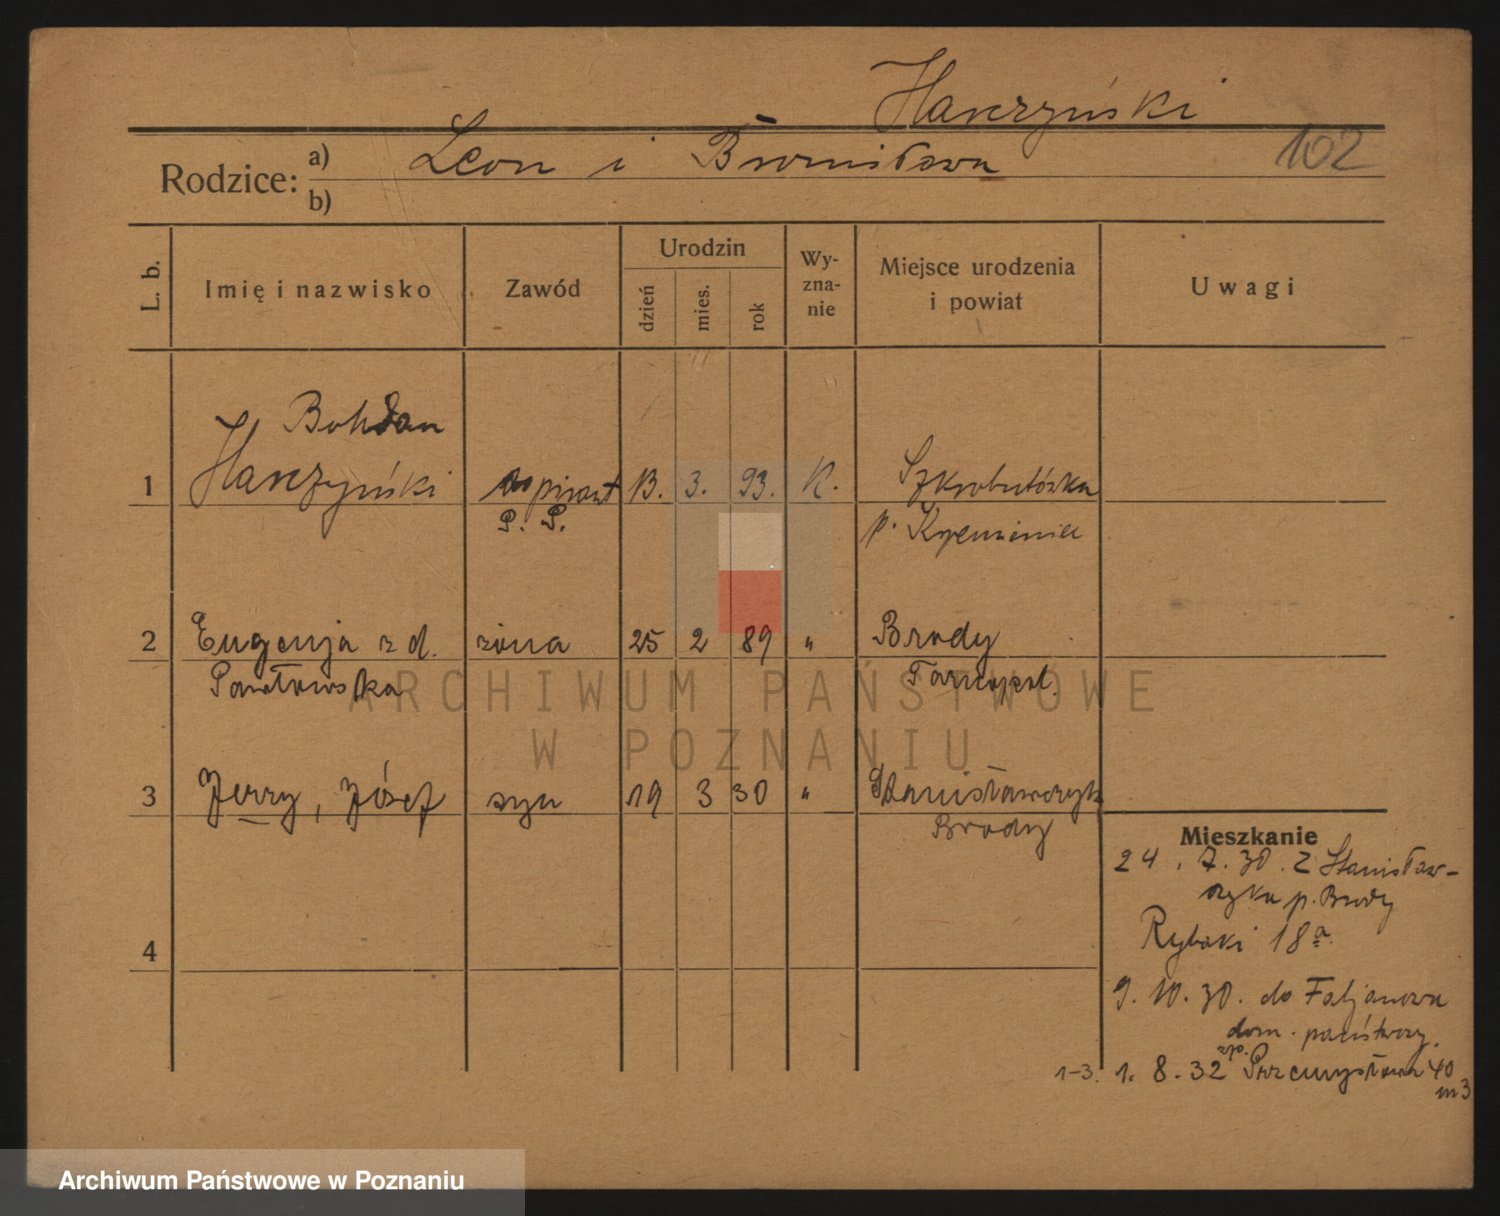 Harczyński
102
Rodzice: a) Leon i Bronisława
b)
L. b.
Imię i nazwisko
Zawód
Urodzin
dzień
mies.
rok
Wy-
zna-
nie
Miejsce urodzenia
i powiat
Uwagi
Bohdan
1 Harczyński aspirant 13. 3. 93. K. Szkrobutówka
P. P. p. Krzemieniec
2 Eugenja z d. żona 25 2 89 " Brody
Pawłowska Tarnopol.
3 Jerzy, Józef syn 19 3 30 " Stanisławczyk
Brody
4
Mieszkanie
24. 7. 30. z Stanisław-
czyka p. Brody
Rybaki 18a.
9. 10. 30. do Fabjanowa
dom. państwowy.
1-3. 1. 8. 32 Przemysłowa 40
m 3
ARCHIWUM PAŃSTWOWE
W POZNANIU
Archiwum Państwowe w Poznaniu